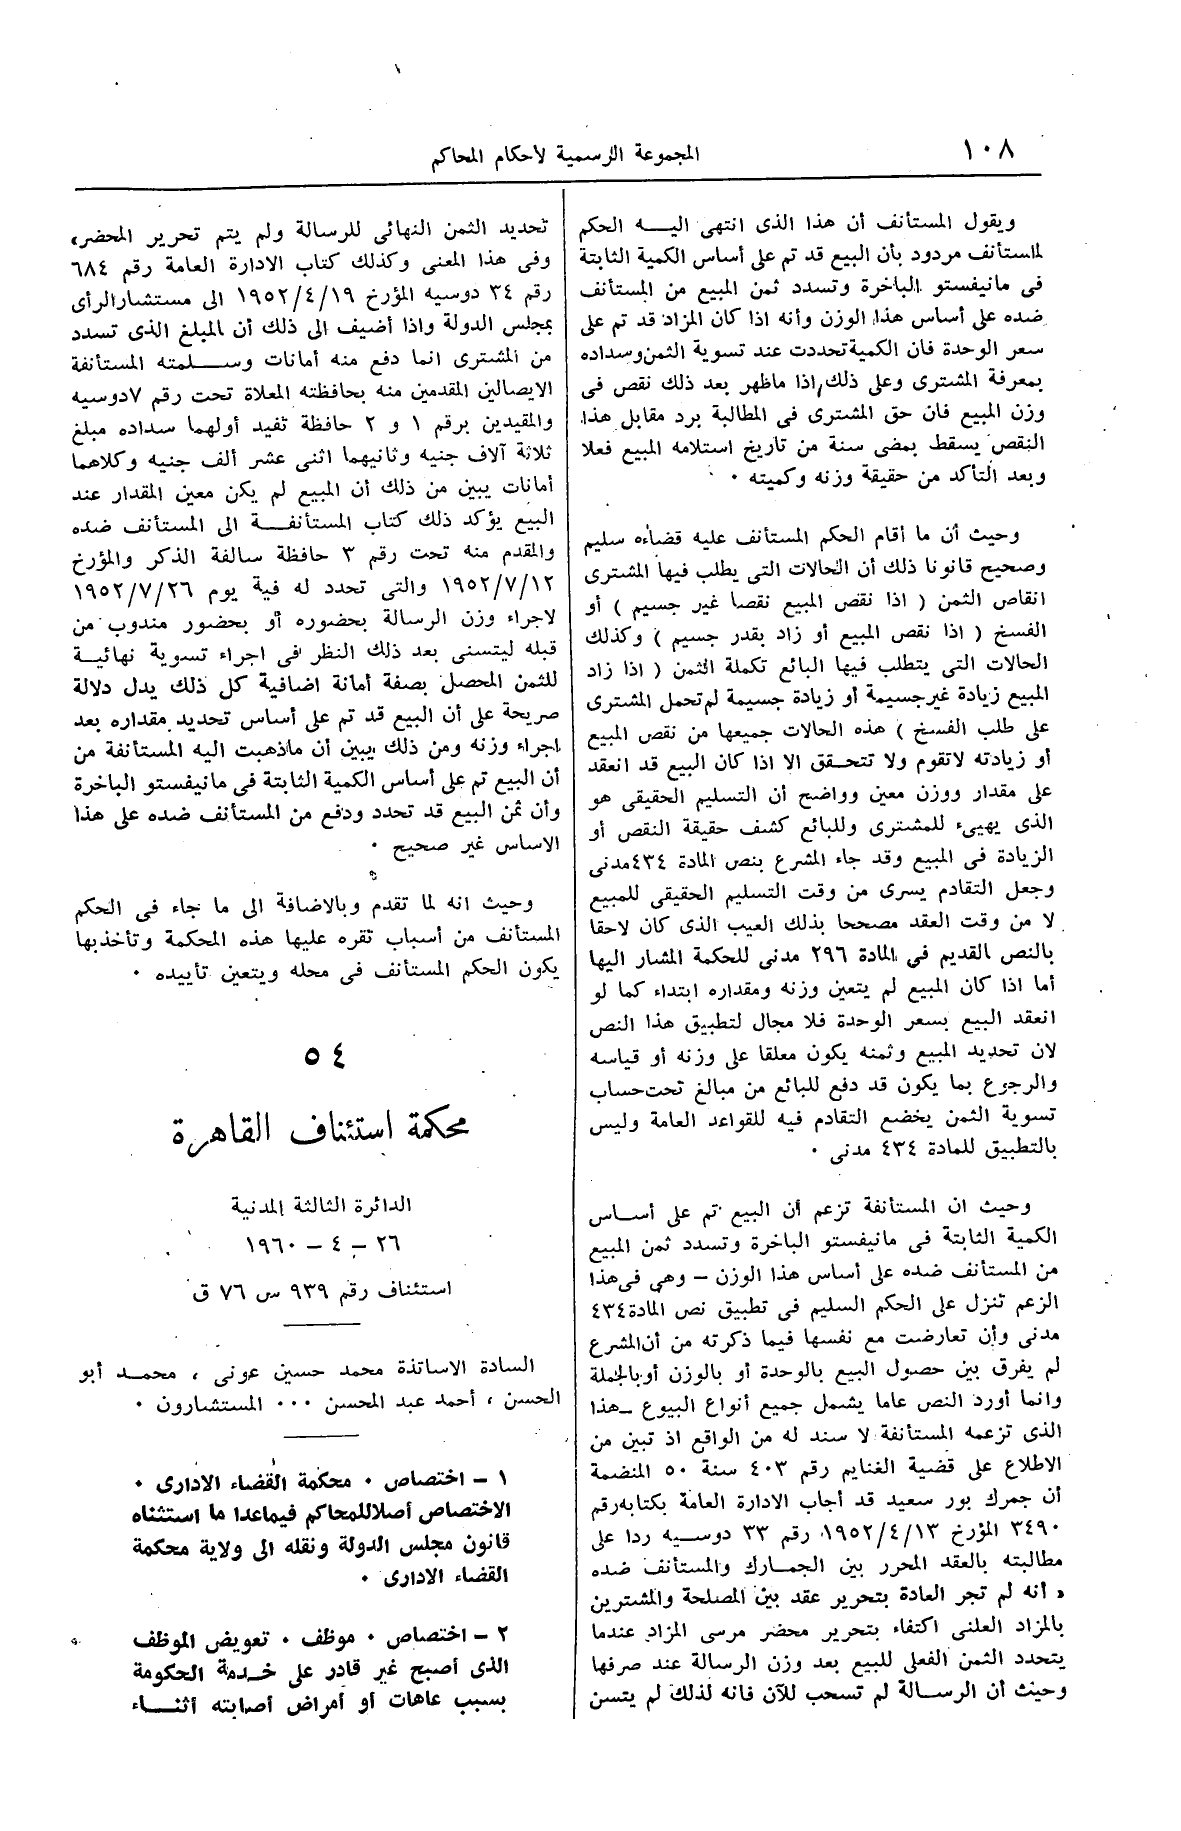 ١٠٨
المجموعة الرسمية لأحكام المحاكم
ويقول المستأنف أن هذا الذى انتهى اليه الحكم
المستأنف مردود بأن البيع قد تم على أساس الكمية الثابتة
فى مانيفستو الباخرة وتسدد ثمن المبيع من المستأنف
ضده على أساس هذا الوزن وأنه اذا كان المزاد قد تم على
سعر الوحدة فان الكمية تحددت عند تسوية الثمن وسداده
بمعرفة المشترى وعلى ذلك اذا ماظهر بعد ذلك نقص فى
وزن المبيع فان حق المشترى فى المطالبة برد مقابل هذا
النقص يسقط بمضى سنة من تاريخ استلامه المبيع فعلا
وبعد التأكد من حقيقة وزنه وكميته ٠
وحيث أن ما أقام الحكم المستأنف عليه قضاءه سليم
وصحيح قانونا ذلك أن الحالات التى يطلب فيها المشترى
انقاص الثمن ( اذا نقص المبيع نقصا غير جسيم ) أو
الفسخ ( اذا نقص المبيع أو زاد بقدر جسيم ) وكذلك
الحالات التى يتطلب فيها البائع تكملة الثمن ( اذا زاد
المبيع زيادة غير جسيمة أو زيادة جسيمة لم تحمل المشترى
على طلب الفسخ ) هذه الحالات جميعها من نقص المبيع
أو زيادته لاتقوم ولا تتحقق الا اذا كان البيع قد انعقد
على مقدار ووزن معين وواضح أن التسليم الحقيقى هو
الذى يهيىء للمشترى وللبائع كشف حقيقة النقص أو
الزيادة فى المبيع وقد جاء المشرع بنص المادة ٤٣٤ مدنى
وجعل التقادم يسرى من وقت التسليم الحقيقى للمبيع
لا من وقت العقد مصححا بذلك العيب الذى كان لاحقا
بالنص القديم فى المادة ٢٩٦ مدنى للحكمة المشار اليها
أما اذا كان المبيع لم يتعين وزنه ومقداره ابتداء كما لو
انعقد البيع بسعر الوحدة فلا مجال لتطبيق هذا النص
لان تحديد المبيع وثمنه يكون معلقا على وزنه أو قياسه
والرجوع بما يكون قد دفع للبائع من مبالغ تحت حساب
تسوية الثمن يخضع التقادم فيه للقواعد العامة وليس
بالتطبيق للمادة ٤٣٤ مدنى ٠
وحيث ان المستأنفة تزعم أن البيع تم على أساس
الكمية الثابتة فى مانيفستو الباخرة وتسدد ثمن المبيع
من المستأنف ضده على أساس هذا الوزن – وهى فى هذا
الزعم تنزل على الحكم السليم فى تطبيق نص المادة ٤٣٤
مدنى وأن تعارضت مع نفسها فيما ذكرته من أن المشرع
لم يفرق بين حصول البيع بالوحدة أو بالوزن أو بالجملة
وانما أورد النص عاما يشمل جميع أنواع البيوع – هذا
الذى تزعمه المستأنفة لا سند له من الواقع اذ تبين من
الاطلاع على قضية الغنايم رقم ٤٠٣ سنة ٥٠ المنضمة
أن جمرك بور سعيد قد أجاب الادارة العامة بكتابه رقم
٣٤٩٠ المؤرخ ١٩٥٢/٤/١٣ رقم ٣٣ دوسيه ردا على
مطالبته بالعقد المحرر بين الجمارك والمستأنف ضده
« أنه لم تجر العادة بتحرير عقد بين المصلحة والمشترين
بالمزاد العلنى اكتفاء بتحرير محضر مرسى المزاد عندما
يتحدد الثمن الفعلى للبيع بعد وزن الرسالة عند صرفها
وحيث أن الرسالة لم تسحب للآن فانه لذلك لم يتسن
تحديد الثمن النهائى للرسالة ولم يتم تحرير المحضر»
وفى هذا المعنى وكذلك كتاب الادارة العامة رقم ٦٨٤
رقم ٣٤ دوسيه المؤرخ ١٩٥٢/٤/١٩ الى مستشار الرأى
بمجلس الدولة واذا أضيف الى ذلك أن المبلغ الذى تسدد
من المشترى انما دفع منه أمانات وسلمته المستأنفة
الايصالين المقدمين منه بحافظته المعلاة تحت رقم ٧ دوسيه
والمقيدين برقم ١ و ٢ حافظة تفيد أولهما سداده مبلغ
ثلاثة آلاف جنيه وثانيهما اثنى عشر ألف جنيه وكلاهما
أمانات يبين من ذلك أن المبيع لم يكن معين المقدار عند
البيع يؤكد ذلك كتاب المستأنفة الى المستأنف ضده
والمقدم منه تحت رقم ٣ حافظة سالفة الذكر والمؤرخ
١٩٥٢/٧/١٢ والتى تحدد له فية يوم ١٩٥٢/٧/٢٦
لاجراء وزن الرسالة بحضوره أو بحضور مندوب من
قبله ليتسنى بعد ذلك النظر فى اجراء تسوية نهائية
للثمن المحصل بصفة أمانة اضافية كل ذلك يدل دلالة
صريحة على أن البيع قد تم على أساس تحديد مقداره بعد
اجراء وزنه ومن ذلك يبين أن ماذهبت اليه المستأنفة من
أن البيع تم على أساس الكمية الثابتة فى مانيفستو الباخرة
وأن ثمن البيع قد تحدد ودفع من المستأنف ضده على هذا
الاساس غير صحيح ٠
وحيث انه لما تقدم وبالاضافة الى ما جاء فى الحكم
المستأنف من أسباب تقره عليها هذه المحكمة وتأخذبها
يكون الحكم المستأنف فى محله ويتعين تأييده ٠
٥٤
محكمة استئناف القاهرة
الدائرة الثالثة المدنية
٢٦ – ٤ – ١٩٦٠
استئناف رقم ٩٣٩ س ٧٦ ق
السادة الاساتذة محمد حسين عونى ، محمد أبو
الحسن ، أحمد عبد المحسن ٠٠٠ المستشارون ٠
١ – اختصاص ٠ محكمة القضاء الادارى ٠
الاختصاص أصلا للمحاكم فيماعدا ما استثناه
قانون مجلس الدولة ونقله الى ولاية محكمة
القضاء الادارى ٠
٢ – اختصاص ٠ موظف ٠ تعويض الموظف
الذى أصبح غير قادر على خدمة الحكومة
بسبب عاهات أو أمراض أصابته أثناء